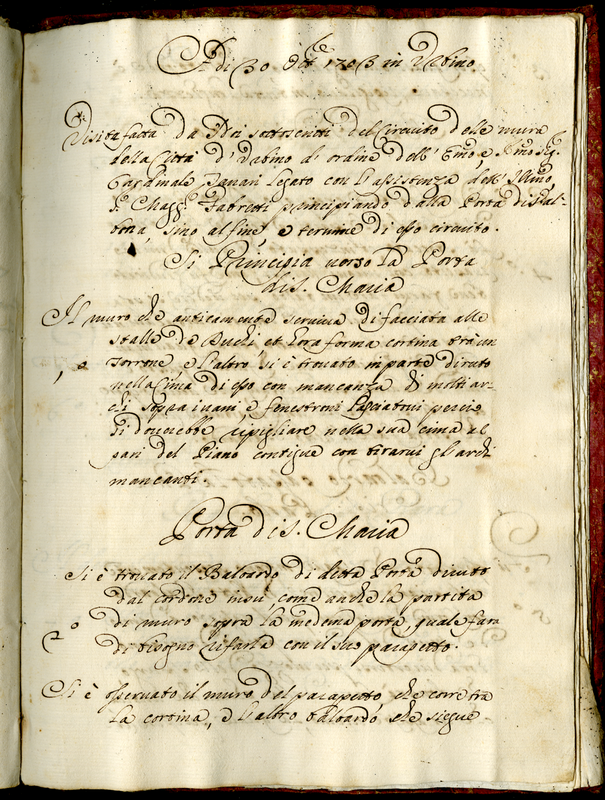 A di 30 8bre 1703 in Urbino
Visita fatta da Noi sottoscritti del Circuito delle mura
della Città d'Urbino d'ordine dell' Emo, e Rmo Sig.
Cardinale Legato con l'assistenza dell' Illmo
Sr. Fabretti principiando dalla Porta di Val-
bona, sino al fine e termine di esso circuito.
Si Principia verso la Porta
di S. Maria
Il muro che anticamente serviva di facciata alle
stalle de Duchi et hora forma cortina trà un
1o Torrone e l'altro si è trovato in parte diruto
nella cima di esso con mancanza di molti ar-
chi sopra i vani e fenestroni lasciatovi perciò
si doverebbe ripigliare nella sua cima al
pari del Piano contiguo con tirarvi gl'archi
mancanti.
Porta di S. Maria
Si è trovato il Baloardo di detta Porta diruto
dal cordone in sù, come anche la partita
2o di muro sopra la medema porta, quale farà
di bisogno rifarla con il suo parapetto.
Si è osservato il muro del parapetto che corre trà
la cortina, e l'altro baloardo che siegue